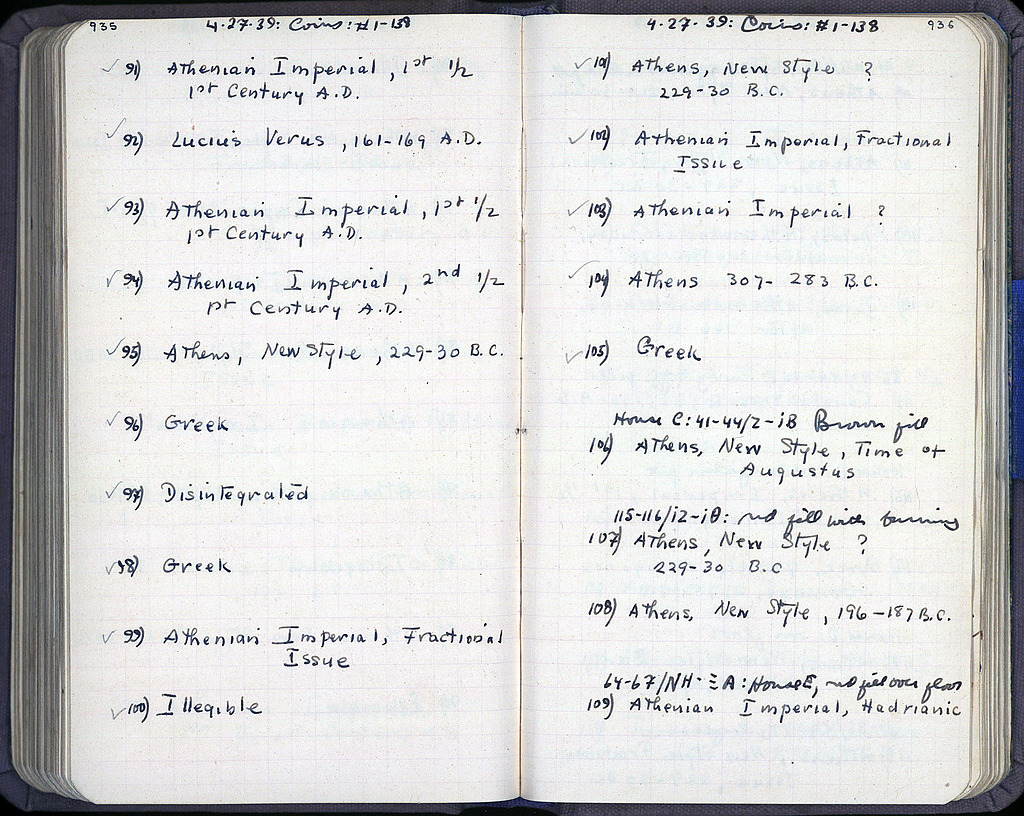 935
4-27-39: Coins: #1-138
✓ 91) Athenian Imperial, 1st 1/2
1st Century A.D.
✓ 92) Lucius Verus, 161-169 A.D.
✓ 93) Athenian Imperial, 1st 1/2
1st Century A.D.
✓ 94) Athenian Imperial, 2nd 1/2
1st Century A.D.
✓ 95) Athens, New Style, 229-30 B.C.
✓ 96) Greek
✓ 97) Disintegrated
✓ 98) Greek
✓ 99) Athenian Imperial, Fractional
Issue
✓ 100) Illegible
4-27-39: Coins: #1-138
936
✓ 101) Athens, New Style ?
229-30 B.C.
✓ 102) Athenian Imperial, Fractional
Issue
✓ 103) Athenian Imperial ?
✓ 104) Athens 307-283 B.C.
✓ 105) Greek
House C: 41-44/Z-iB Brown fill
106) Athens, New Style, Time of
Augustus
115-116/iZ-iθ: red fill with burning
107) Athens, New Style ?
229-30 B.C
108) Athens, New Style, 196-187 B.C.
64-67/NH-ΞA: House E, red fill over floor
109) Athenian Imperial, Hadrianic